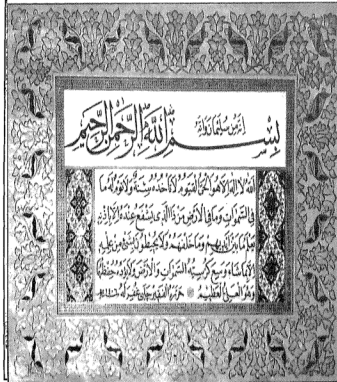 إنه من سليمان وإنه
بسم الله الرحمن الرحيم
الله لا اله الا هو الحي القيوم لا تأخذه سنة ولا نوم له ما
في السموات وما في الارض من ذا الذي يشفع عنده الا باذنه
يعلم ما بين ايديهم وما خلفهم ولا يحيطون بشئ من علمه
الا بما شاء وسع كرسيه السموات والارض ولا يؤده حفظهما
وهو العلي العظيم حرره الفقير غفر له